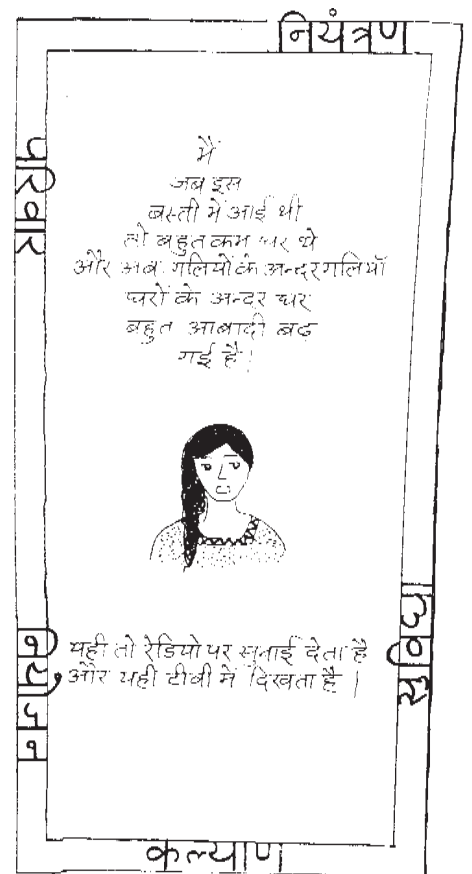 नियंत्रण
परिवार
मैं
जब इस
बस्ती में आई थी
तो बहुत कम घर थे
और अब गलियों के अन्दर गलियाँ
घरों के अन्दर घर
बहुत आबादी बढ़
गई है।
यही तो रेडियो पर सुनाई देता है
और यही टीबी में दिखता है।
नियोजन
सुविधा
कल्याण